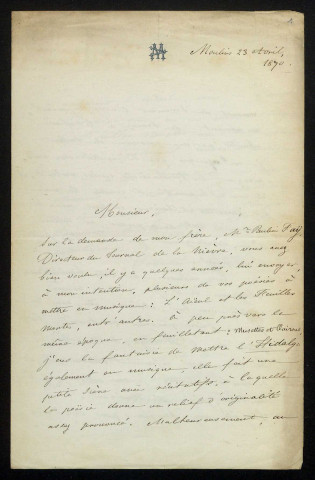 1
Moulins 23 Avril,
1870.
Monsieur,
Sur la demande de mon frère, Mr
Directeur du Journal de la Nièvre, vous avez
bien voulu, il y a quelques années, lui envoyer
à mon intention, plusieurs de vos poésies à
mettre en musique : L'Aïeul et les Feuilles
mortes, entr'autres. À peu près vers la
même époque, en feuilletant : Musettes et Clairons
j'eus la fantaisie de mettre l'Hidalgo
également en musique. elle fait une
petite scène avec récitatifs, à laquelle
la poésie donne un relief d'originalité
assez prononcé. Malheureusement, au